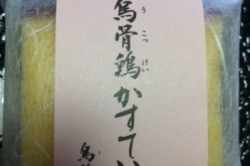 烏骨鶏かすてい
うこっけい
烏